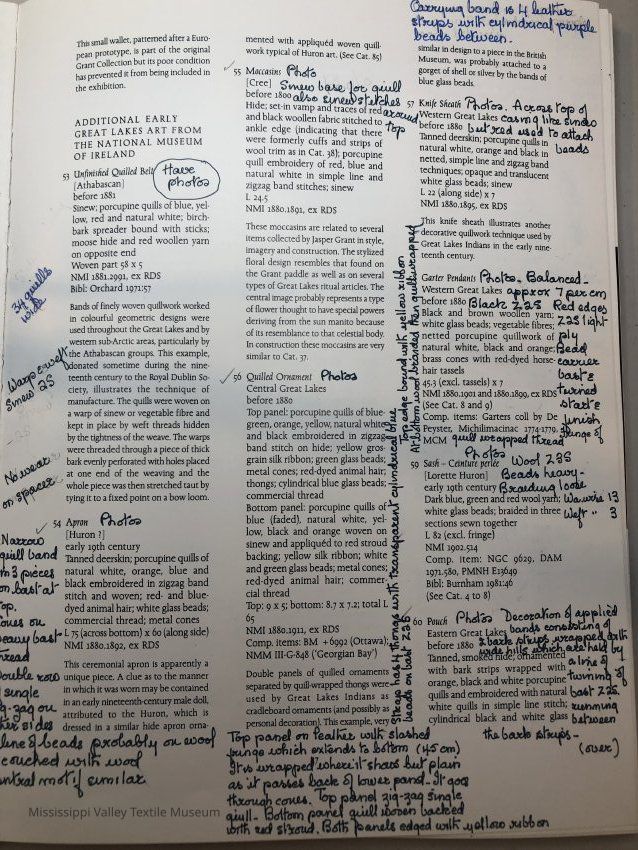 This small wallet, patterned after a Euro-
pean prototype, is part of the original
Grant Collection but its poor condition
has prevented it from being included in
the exhibition.
ADDITIONAL EARLY
GREAT LAKES ART FROM
THE NATIONAL MUSEUM
OF IRELAND
53 Unfinished Quilled Belt
Have
photos
[Athabascan]
before 1881
Sinew; porcupine quills of blue, yel-
low, red and natural white; birch-
bark spreader bound with sticks;
moose hide and red woollen yarn
on opposite end
Woven part 58 x 5
NMI 1881.2991, ex RDS
Bibl: Orchard 1971:57
34 quills
wide
Bands of finely woven quillwork worked
in colourful geometric designs were
used throughout the Great Lakes and by
western sub-Arctic areas, particularly by
the Athabascan groups. This example,
donated sometime during the nine-
teenth century to the Royal Dublin So-
ciety, illustrates the technique of
manufacture. The quills were woven on
a warp of sinew or vegetable fibre and
kept in place by weft threads hidden
by the tightness of the weave. The warps
were threaded through a piece of thick
bark evenly perforated with holes placed
at one end of the weaving and the
whole piece was then stretched taut by
tying it to a fixed point on a bow loom.
Warp & weft
Sinew 2S
No wear
on spacer
54 Apron Photos
[Huron ?]
early 19th century
Tanned deerskin; porcupine quills of
natural white, orange, blue and
black embroidered in zigzag band
stitch and woven; red- and blue-
dyed animal hair; white glass beads;
commercial thread; metal cones
L 75 (across bottom) x 60 (along side)
NMI 1880.1892, ex RDS
This ceremonial apron is apparently a
unique piece. A clue as to the manner
in which it was worn may be contained
in an early nineteenth-century male doll,
attributed to the Huron, which is
dressed in a similar hide apron orna-
Narrow
quill band
3 pieces
on bast at
top.
on
heavy bast
thread
Double row
single
zig-zag on
sides
line of beads probably on wool
couched with wool
central motif similar
mented with appliquéd woven quill-
work typical of Huron art. (See Cat. 85)
55 Moccasins Photo
[Cree] Sinew base for quill
before 1800 also sinew stitches
around
top
Hide; set-in vamp and traces of red
and black woollen fabric stitched to
ankle edge (indicating that there
were formerly cuffs and strips of
wool trim as in Cat. 38); porcupine
quill embroidery of red, blue and
natural white in simple line and
zigzag band stitches; sinew
L 24.5
NMI 1880.1891, ex RDS
These moccasins are related to several
items collected by Jasper Grant in style,
imagery and construction. The stylized
floral design resembles that found on
the Grant paddle as well as on several
types of Great Lakes ritual articles. The
central image probably represents a type
of flower thought to have special powers
deriving from the sun manito because
of its resemblance to that celestial body.
In construction these moccasins are very
similar to Cat. 37.
56 Quilled Ornament Photos
Central Great Lakes
before 1880
Top panel: porcupine quills of blue-
green, orange, yellow, natural white
and black embroidered in zigzag
band stitch on hide; yellow gros-
grain silk ribbon; green glass beads;
metal cones; red-dyed animal hair;
thongs; cylindrical blue glass beads;
commercial thread
Bottom panel: porcupine quills of
blue (faded), natural white, yel-
low, black and orange woven on
sinew and appliquéd to red stroud
backing; yellow silk ribbon; white
and green glass beads; metal cones;
red-dyed animal hair; commer-
cial thread
Top: 9 x 5; bottom: 8.7 x 7.2; total L
65
NMI 1880.1911, ex RDS
Comp. items: BM + 6992 (Ottawa);
NMM III-G-848 ('Georgian Bay')
Double panels of quilled ornaments
separated by quill-wrapped thongs were
used by Great Lakes Indians as
cradleboard ornaments (and possibly as
personal decoration). This example, very
Top panel on leather with slashed
fringe which extends to bottom (45 cm)
It is wrapped where it shows but plain
as it passes back of lower panel - It goes
through cones. Top panel zig-zag single
quill - Bottom panel quill woven backed
with red stroud. Both panels edged with yellow ribbon
Straps has 4 thongs with transparent cylindrical blue
beads on bast Z2S
Top edge bound with yellow ribbon
At bottom wool braided then quill wrapped
Carrying band is 4 leather
strips with cylindrical purple
beads between.
similar in design to a piece in the British
Museum, was probably attached to a
gorget of shell or silver by the bands of
blue glass beads.
57 Knife Sheath Photos. Across top of
Western Great Lakes casing like sinew
before 1880 but red used to attach
beads
Tanned deerskin; porcupine quills in
natural white, orange and black in
netted, simple line and zigzag band
techniques; opaque and translucent
white glass beads; sinew
L 22 (along side) x 7
NMI 1880.1895, ex RDS
This knife sheath illustrates another
decorative quillwork technique used by
Great Lakes Indians in the early nine-
teenth century.
Garter Pendants Photos. Balanced-
Western Great Lakes approx 7 per cm
before 1880 Black Z2S Red edges
Z2S light
ply
Bead
carrier
bast &
turned
start &
finish
Black and brown woollen yarn;
white glass beads; vegetable fibres;
netted porcupine quillwork of
natural white, black and orange;
brass cones with red-dyed horse-
hair tassels
45.3 (excl. tassels) x 7
NMI 1880.1901 and 1880.1899, ex RDS
(See Cat. 8 and 9)
Comp. items: Garters coll by De
Peyster, Michilimacinac 1774-1779,
MCM quill wrapped thread fringe of
59 Sash – Ceinture perlée Wool Z2S
[Lorette Huron] Beads heavy-
early 19th century Braiding loose
Dark blue, green and red wool yarn;
white glass beads; braided in three
sections sewn together
13
Weft .. 3
L 82 (excl. fringe)
NMI 1902.514
Comp. item: NGC 9629, DAM
1971.580, PMNH E13649
Bibl: Burnham 1981:46
(See Cat. 4 to 8)
60 Pouch Photos Decoration of applied
Eastern Great Lakes bands consisting of
before 1880 2 bark strips wrapped with
which are held by
a line of
twining of
bast Z2S
running
between
the bark strips -
(over)
Tanned, smoked hide; ornamented
with bark strips wrapped with
orange, black and white porcupine
quills and embroidered with natural
white quills in simple line stitch;
cylindrical black and white glass
Mississippi Valley Textile Museum